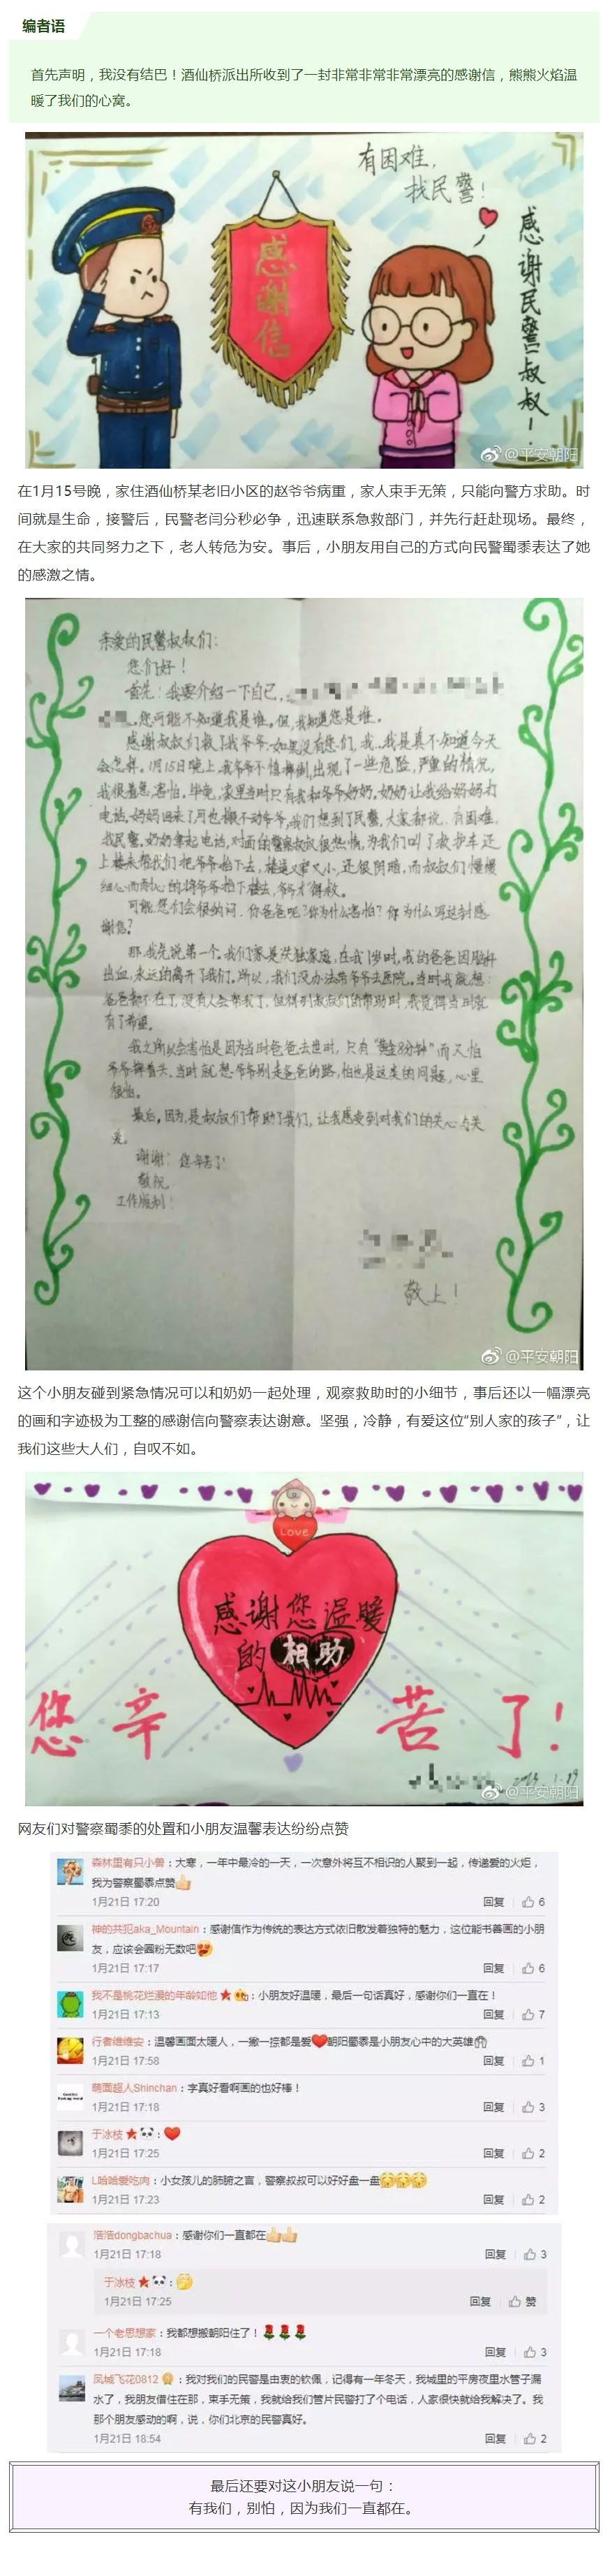 编者语
首先声明，我没有结巴！酒仙桥派出所收到了一封非常非常非常漂亮的感谢信，熊熊火焰温
暖了我们的心窝。
有困难，
找民警！
感谢信
感谢民警叔叔！
@平安朝阳
在1月15号晚，家住酒仙桥某老旧小区的赵爷爷病重，家人束手无策，只能向警方求助。时
间就是生命，接警后，民警老闫分秒必争，迅速联系急救部门，并先行赶赴现场。最终，
在大家的共同努力之下，老人转危为安。事后，小朋友用自己的方式向民警蜀黍表达了她
的感激之情。
亲爱的民警叔叔们：
您们好！
首先：我要介绍一下自己，
您可能不知道我是谁。但，我知道您是谁。
感谢叔叔们救了我爷爷，如果没有您们，我…我是真不知道今天
会怎样。1月15日晚上，我爷爷不慎摔倒，出现了一些危险，严重的情况，
我很着急，害怕。毕竟，家里当时只有我和爷爷奶奶，奶奶让我给妈妈打
电话，妈妈回来了可也搬不动爷爷，我们想到了民警，大家都说：有困难，
找民警，奶奶拿起电话，对面的警察叔叔很热情，为我们叫了救护车还
上楼来帮我们把爷爷抬下去，楼道又窄又小，还很阴暗，而叔叔们慢慢
细心而耐心的将爷爷抬下楼去，爷爷才得救。
可能您们会很纳闷，你爸爸呢？你为什么害怕？你为什么写这封感
谢信？
那，我先说第一个。我们家是失独家庭，在我1岁时，我的爸爸因脑干
出血，永远的离开了我们。所以，我们没办法带爷爷去医院。当时我就想：
爸爸都不在了，没有人会帮我了，但得到叔叔们的帮助时，我觉得当时就
有了希望。
我之所以会害怕是因为当时爸爸去世时，只有“黄金8分钟”而又怕
爷爷摔着头。当时就想：爷爷别走爸爸的路，怕也是这类的问题，心里
很怕。
最后，因为是叔叔们帮助了我们，让我感受到对我们的关心与关
爱。
谢谢！您辛苦了！
敬祝
工作顺利！
敬上！
@平安朝阳
这个小朋友碰到紧急情况可以和奶奶一起处理，观察救助时的小细节，事后还以一幅漂亮
的画和字迹极为工整的感谢信向警察表达谢意。坚强，冷静，有爱这位“别人家的孩子”，让
我们这些大人们，自叹不如。
Love
感谢您温暖
的相助
您辛苦了！
@平安朝阳
网友们对警察蜀黍的处置和小朋友温馨表达纷纷点赞
森林里有只小兽：大寒，一年中最冷的一天，一次意外将互不相识的人聚到一起，传递爱的火炬，
我为警察蜀黍点赞
1月21日 17:20 回复 6
神的共犯aka_Mountain：感谢信作为传统的表达方式依旧散发着独特的魅力，这位能书善画的小朋
友，应该会圈粉无数吧
1月21日 17:17 回复 6
我不是桃花烂漫的年龄如他：小朋友好温暖，最后一句话真好，感谢你们一直在！
1月21日 17:13 回复 7
行者维维安：温馨画面太暖人，一撇一捺都是爱朝阳蜀黍是小朋友心中的大英雄
1月21日 17:58 回复 1
萌面超人Shinchan：字真好看啊画的也好棒！
1月21日 17:18 回复 3
于冰枝：
1月21日 17:25 回复 2
L哈哈爱吃肉：小女孩儿的肺腑之言，警察叔叔可以好好盘一盘
1月21日 17:23 回复 2
浩浩dongbachua：感谢你们一直都在
1月21日 17:18 回复 3
于冰枝：
1月21日 17:25 回复 赞
一个老思想家：我都想搬朝阳住了！
1月21日 17:18 回复 3
凤城飞花0812：我对我们的民警是由衷的钦佩，记得有一年冬天，我城里的平房夜里水管子漏
水了，我朋友借住在那，束手无策，我就给我们管片民警打了个电话，人家很快就给我解决了。我
那个朋友感动的啊，说，你们北京的民警真好。
1月21日 18:54 回复 2
最后还要对这小朋友说一句：
有我们，别怕，因为我们一直都在。